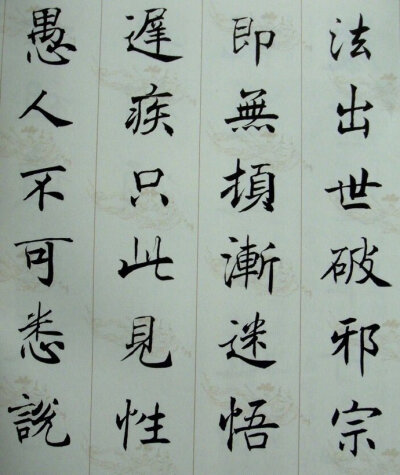 法出世破邪宗
即無頓漸迷悟
遲疾只此見性
愚人不可悉說